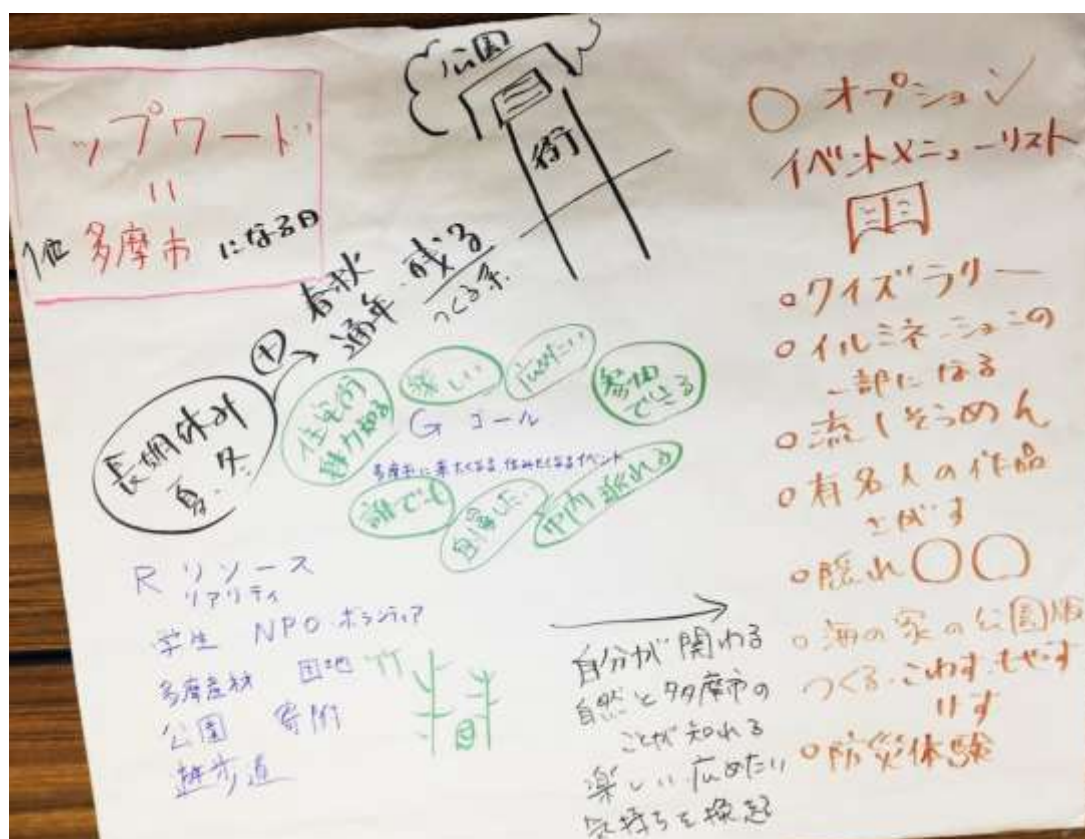 トップワード
=
1位 多摩市 になる日
公園
街
春秋
通年・残る
つくる系
+
長期休み
夏・冬
住宅街
魅力知る
楽しい
広めたい
参加
できる
G ゴール
多摩市に来たくなる 住みたくなるイベント
誰でも
自慢したい
市内 巡れる
R リソース
リアリティ
学生 NPO ボランティア
多摩産材 団地 竹
公園 寄附
遊歩道
自分が関わる
自然と多摩市の
ことが知れる
楽しい 広めたい
気持ちを喚起
○ オプション
イベントメニューリスト
○クイズラリー
○イルミネーションの
一部になる
○流しそうめん
○有名人の作品
さがす
○隠れ○○
○海の家の公園版
つくる・こわす・もやす
けす
○防災体験